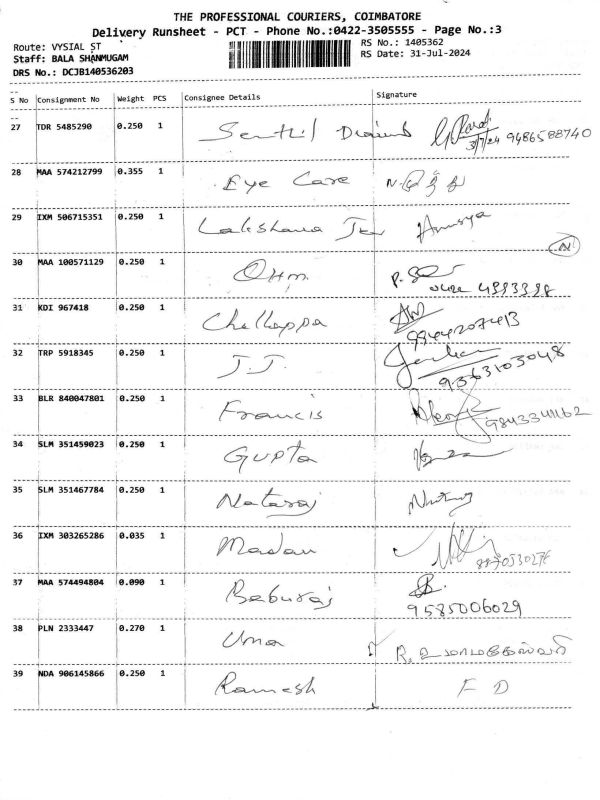 THE PROFESSIONAL COURIERS, COIMBATORE
Delivery Runsheet - PCT - Phone No.:0422-3505555 - Page No.:3
Route: VYSIAL ST
RS No.: 1405362
Staff: BALA SHANMUGAM
RS Date: 31-Jul-2024
DRS No.: DCJB140536203
S No Consignment No Weight PCS Consignee Details Signature
27 TDR 5485290 0.250 1 Senthil 9486588740
28 MAA 574212799 0.355 1 Eye Care
29 IXM 506715351 0.250 1 Lakshana Anusya
N
30 MAA 100571129 0.250 1 Ohm
31 KDI 967418 0.250 1 Chellappa 9944207413
32 TRP 5918345 0.250 1 J.J. 9363103048
33 BLR 840047801 0.250 1 Francis 9843341162
34 SLM 351459023 0.250 1 Gupta
35 SLM 351467784 0.250 1 Nataraj
36 IXM 303265286 0.035 1 Madan
37 MAA 574494804 0.090 1 Baburaj 9585006029
38 PLN 2333447 0.270 1 Uma R. உமாமகேஸ்வரி
39 NDA 906145866 0.250 1 Ramesh F D